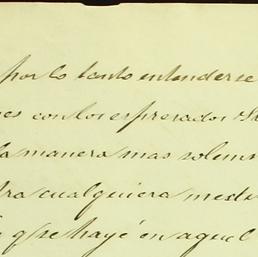 por lo tanto entenderse
nes con los espresados
la manera mas solem
tra cualquiera medi
que hayé en aquel